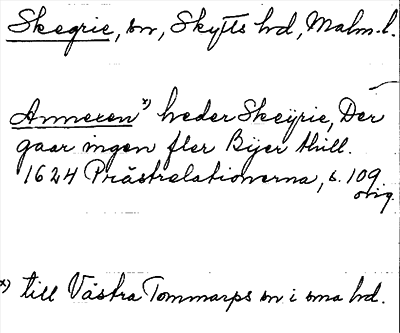 Skegrie, sn, Skytts hd, Malm. l.
Annexen x) heder Skeÿrie, Der
gaar ingen fler Bÿer thill.
1624 Prästrelationerna, s. 109
orig.
x) till Västra Tommarps sn i sma hd.